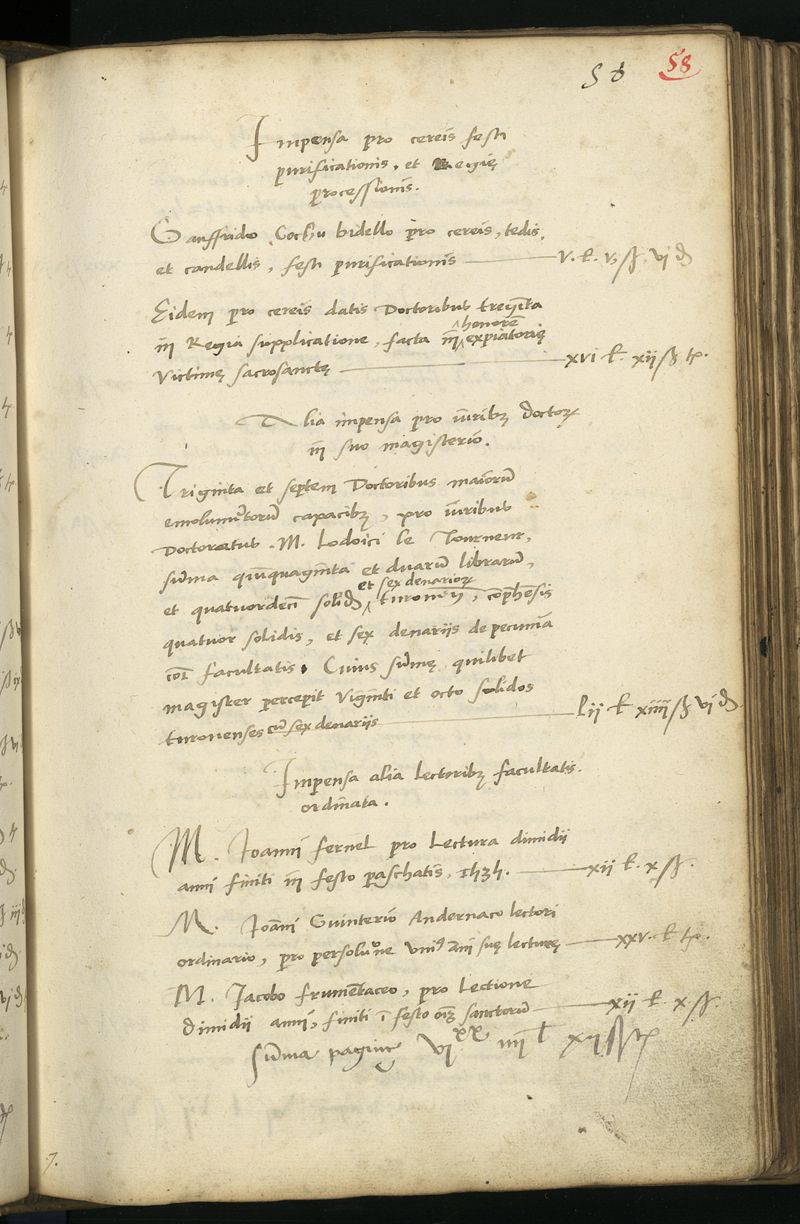 58 58
Impensa pro cereis festi
purificationis, et Regię
processionis.
Gauffrido Cochu bidello pro cereis, tedis,
et candellis, festi purificationis — v. ł. v ß. vi đ
Eidem pro cereis datis Doctoribus
in Regia supplicatione, facta in honorē expiatorię
Victimę sacrosanctę — xvi ł. xii ß tꝰ.
Alia impensa pro iuribꝫ doctoꝝ
in suo magisterio.
Triginta et septem Doctoribus maiorū
emolumētorū capacibꝫ, pro iuribus
Doctoratus .M. Lodoici le Tourneur,
sūma quīquagīta et duarū librarū,
et quatuordecī solidoꝝ et sex denarioꝝ turoniū, cōprehēsis
quatuor solidis, et sex denariis de pecunia
cōi facultatis. Cuius sūmę quilibet
magister percepit viginti et octo solidos
turonenses cū sex denariis — lii ł xiiii ß vi đ.
Impensa alia lectoribꝫ facultatis.
ordinata.
M. Joanni fernel pro Lectura dimidii
anni finiti in festo paschatis, 1535. — xii ł. x ß.
M. Joāni Guinterio Andernaco lectori
ordinario, pro persolutiōne uniꝰ āni suę lecturę — xxv. ł tꝰ.
M. Jacobo frumētaceo, pro lectione
dimidii anni, finiti ī festo oīm sanctorū — xii ł x ß.
Sūma paginę vi^xx iiii ł xii ß tꝰ
7.